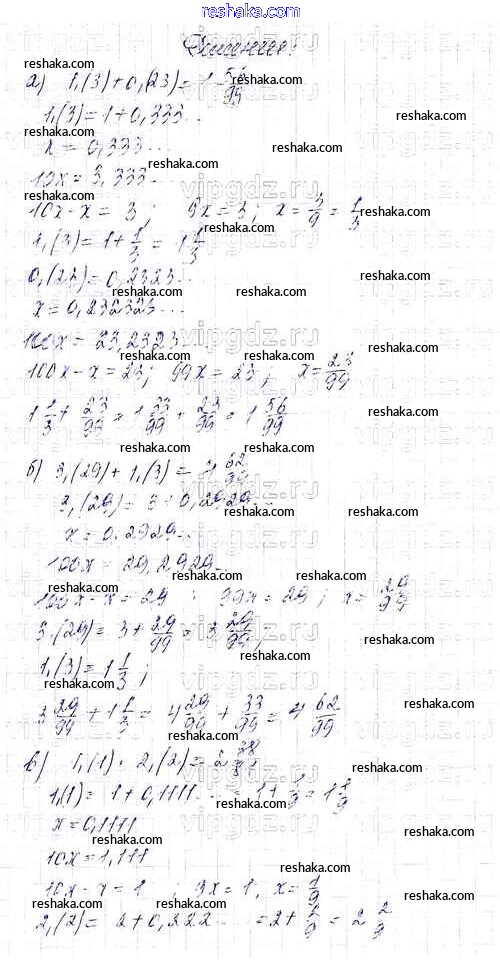 Решения:
а) 1,(3)+0,(23)=1 56/99
1,(3)=1+0,333...
x=0,333...
10x=3,333...
10x-x=3; 9x=3; x=3/9=1/3
1,(3)=1+1/3=1 1/3
0,(23)=0,2323...
x=0,232323...
100x=23,2323...
100x-x=23; 99x=23; x=23/99
1 1/3+23/99=1 33/99+23/99=1 56/99
б) 3,(29)+1,(3)=4 62/99
3,(29)=3+0,2929...
x=0,2929...
100x=29,2929...
100x-x=29; 99x=29; x=29/99
3,(29)=3+29/99=3 29/99;
1,(3)=1 1/3;
3 29/99+1 1/3=4 29/99+33/99=4 62/99
в) 1,(1)·2,(2)=2 38/81
1,(1)=1+0,1111...=1+1/9=1 1/9
x=0,1111
10x=1,111
10x-x=1; 9x=1, x=1/9
2,(2)=2+0,222...=2+2/9=2 2/9
reshaka.com
vipgdz.ru